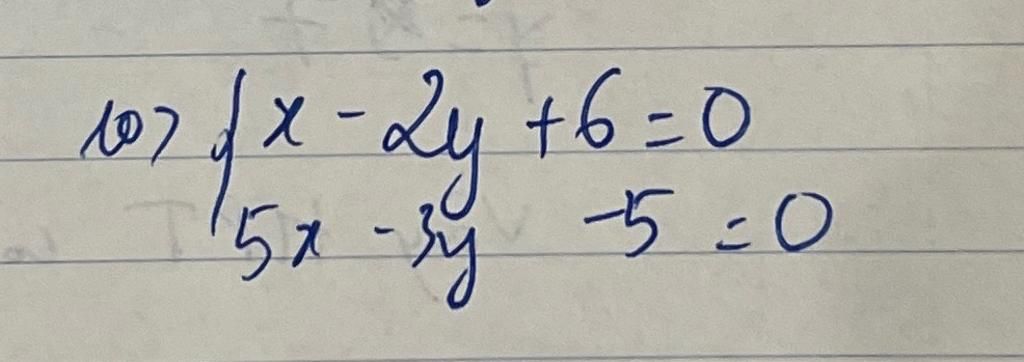 10> { x - 2y + 6 = 0
5x - 3y - 5 = 0